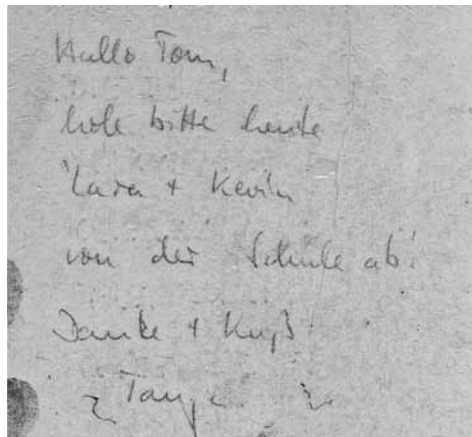 Hallo Tom,
hole bitte heute
Lara + Kevin
von der Schule ab!
Danke + Kuß
Tanja